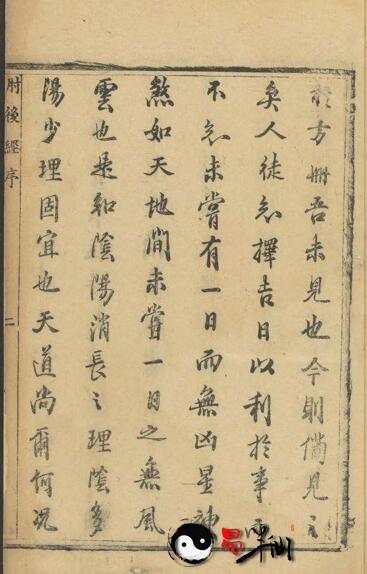 於方冊吾未見也今則備見之
矣人徒知擇吉日以利於事而
不知未嘗有一日而無凶星神
煞如天地間未嘗一日之無風
雲也是知陰陽消長之理陰多
陽少理固宜也天道尚爾何況
肘後經序
二
易